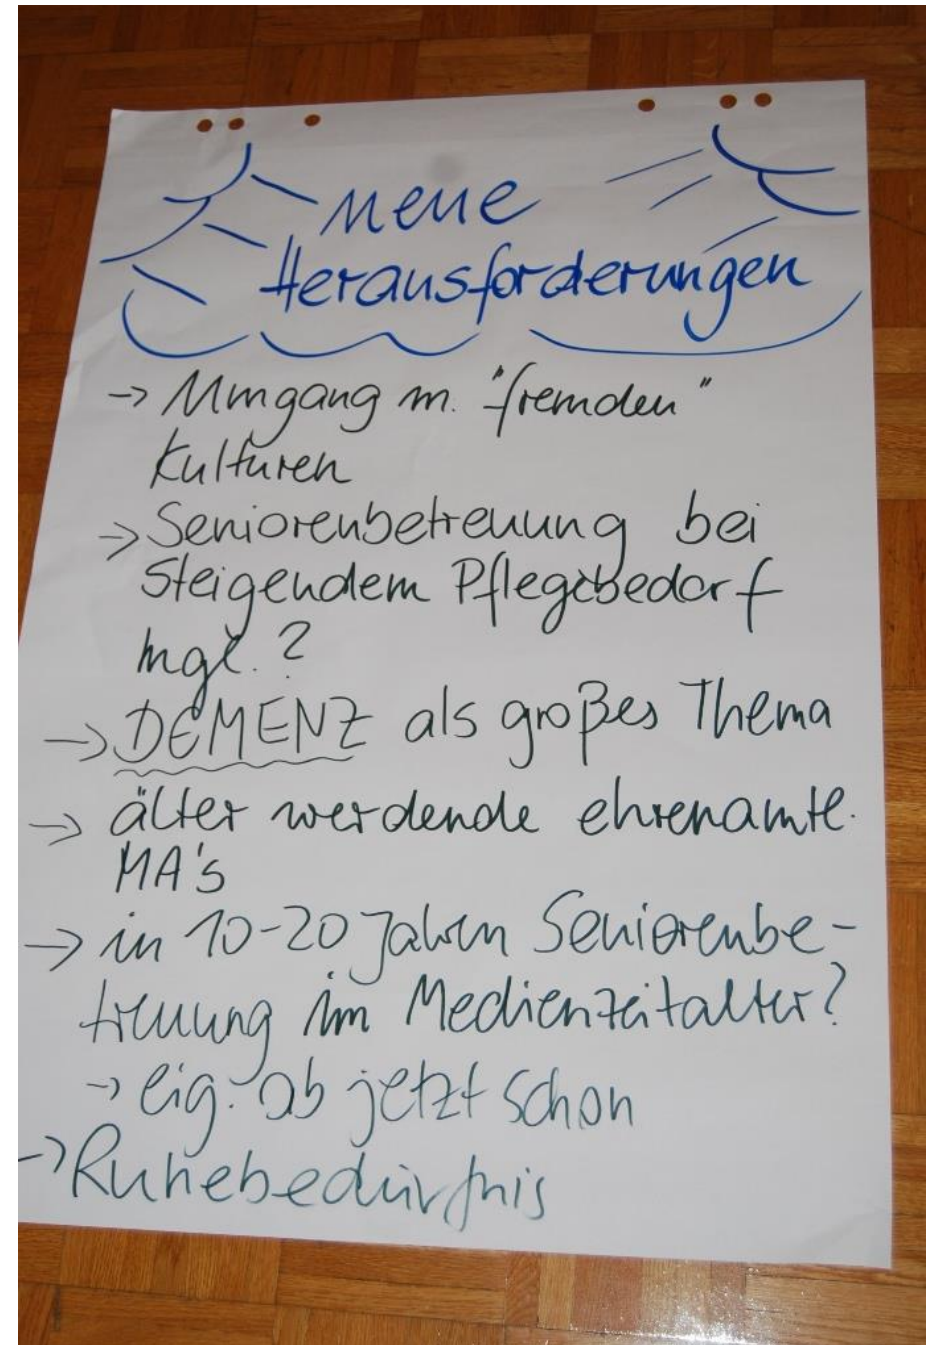 neue
Herausforderungen
→ Umgang m. "fremden"
Kulturen
→ Seniorenbetreuung bei
steigendem Pflegebedarf
mgl.?
→ DEMENZ als großes Thema
→ älter werdende ehrenamtl.
MA's
→ in 10-20 Jahren Seniorenbe-
treuung im Medienzeitalter?
→ eig. ab jetzt schon
→ Ruhebedürfnis